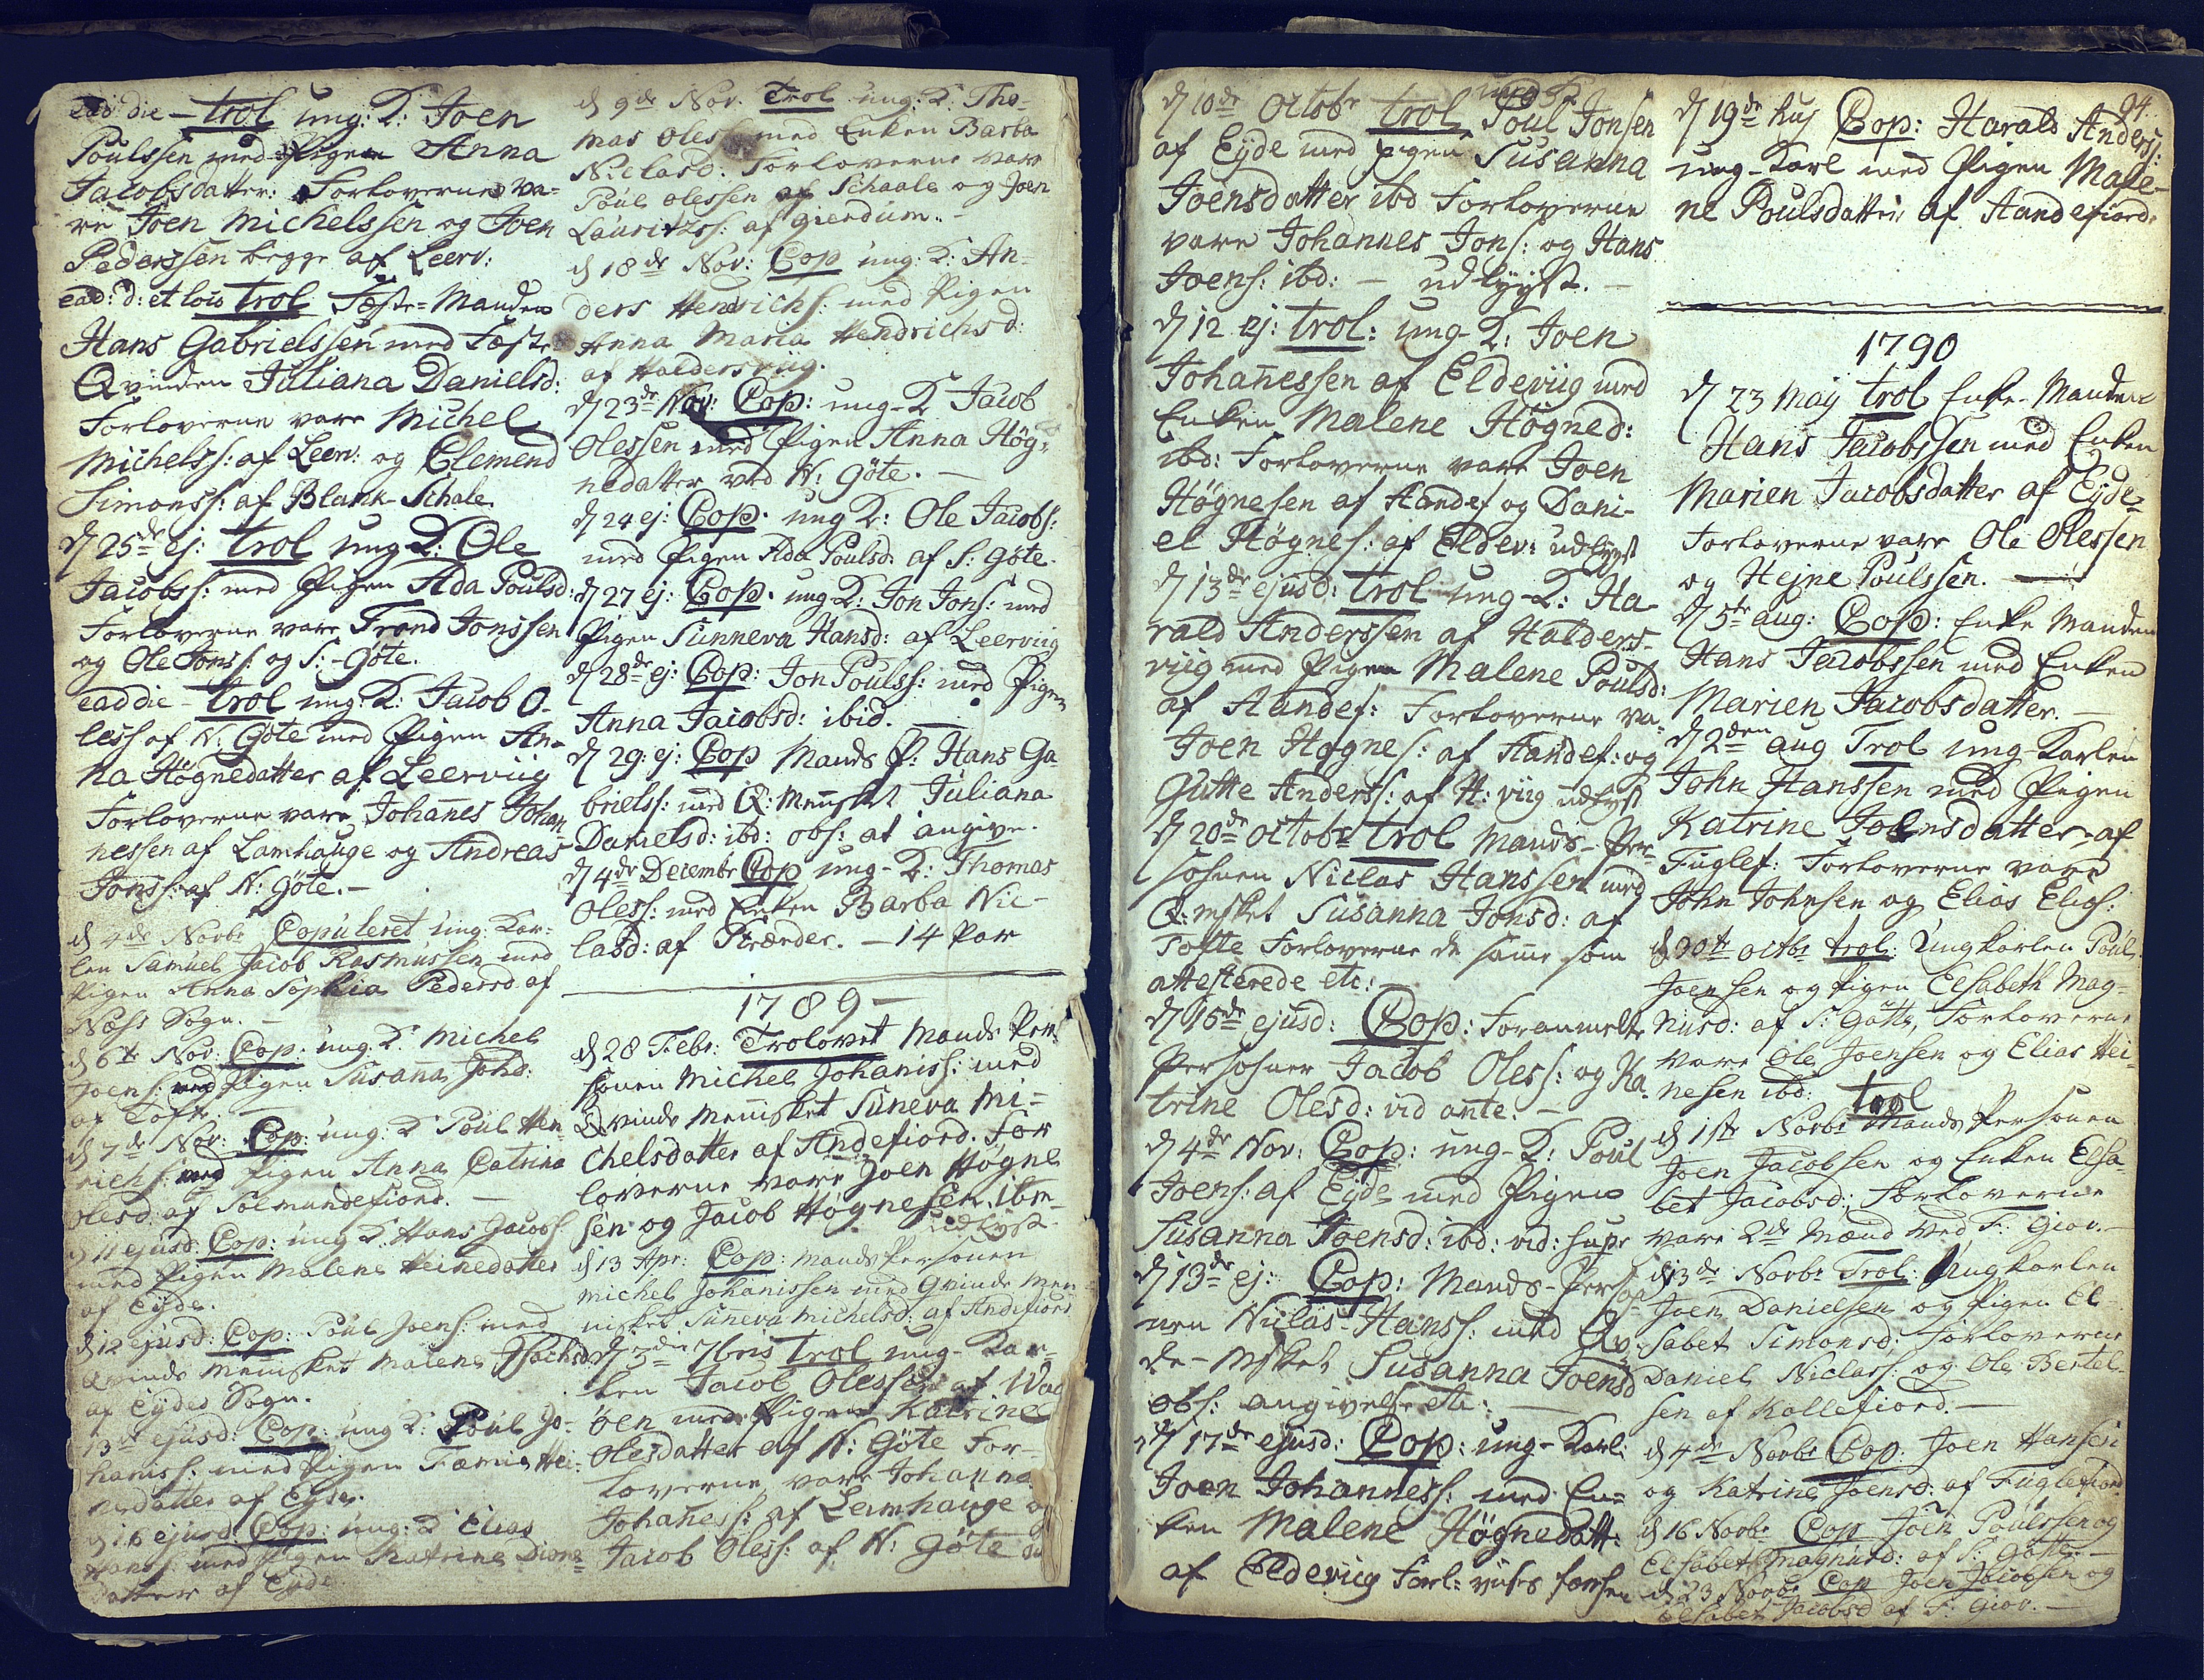 ead die - trol ung: K: Joen
Poulssen med Pigen Anna
Jacobsdatter: Forloverne va-
re Joen Michelssen og Joen
Pederssen begge af Leerv:
ead: d: et loco trol Fæste-Manden
Hans Gabrielssen med Fæste
Qvinden Juliana Danielsd:
Forloverne vare Michel
Michelss: af Leerv: og Clemend
Simonss: af Blank-Schale
d 25de ej: trol ung K: Ole
Jacobss: med Pigen Ada Poulsd:
Forloverne vare Trond Jonssen
og Ole Jonss: og S:-Göte.
ead die - trol ung: K: Jacob O-
less af N: Göte med Pigen An-
na Högnedatter af Leerviig
Forloverne vare Johañes Johan
nessen af Lamhauge og Andreas
Jonss: af N: Göte. -
d 4de Novbr Copuleret ung: Kar-
len Samuel Jacob Rasmussen med
Pigen Anna Sophia Pedersd af
Næss Sogn. -
d 6te Nov: Cop: ung: K: Michel
Joens: med Pigen Susaña Johs:
af Tofte. -
d 7de Nov: Cop: ung: K: Poul Hen-
richs: med Pigen Anna Catrina
Olesd: af Solmundefiord. -
d 11 ejusd: Cop: ung K: Hans Jacobs:
med Pigen Malene Heinedatter
af Eyde.
d 12 ejusd: Cop: Poul Joens: med
Qvinde Meñisket Malene
af Eydes Sogn.
13de ejusd: Cop: ung K: Poul Jo-
haniss: med Pigen Hei-
nedatter af Eyde.
d 16 ejusd: Cop: ung: K: Elias
Hanss: med Pigen Katrine
datter af Eyde
d 9de Nov. Trol ung: K: Tho-
mas Oless: med Enken Barba
Niclasd: Forloverne var
Poul Olessen af Schaale og Joen
Lauritzss: af Giendum. -
d 18de Nov: Cop ung: K: An-
ders Henrichs: med Pigen
Anna Maria Hendrichsd:
af Haldersviig.
d 23de Nov: Cop: ung-K Jacob
Olessen med Pigen Anna Hög-
nedatter ved N: Göte. -
d 24 ej: Cop: ung K: Ole Jacobs:
med Pigen Ada Poulsd: af S: Göte.
d 27 ej: Cop. ung K: Jon Jons: med
Pigen Sunneva Hansd: af Leerviig
d 28de ej: Cop: Jon Poulss: med Pigen
Anna Jacobsd: ibid. -
d 29: ej: Cop Mands P: Hans Ga
brielss: med Q: Meñsket Juliana
Danielsd: ibd: obs: at angive.
d 4de Decembr Cop ung-K: Thomas
Oless: med Enken Barba Nic-
lasd: af Strænder. - 14 Par
1789 -
d 28 Febr: Trolovet Mands Per-
sonen Michel Johaniss: med
Qvinde Meñisket Suneva Mi-
chelsdatter af Andefiord. For
loverne vare Joen Högne
sen og Jacob Högnesen ibm
udlyst.
d 13 Apr: Cop: Mands Personen
Michel Johanissen med Qvinde Men-
nisket Suneva Michelsd: af Andefiord
d 3die 7bris trol ung-Kar-
len Jacob Olessen af Wa
öen med Pigen Katrine
Olesdatter af N: Göte For-
loverne vare Johanne
Johañess: af Lamhauge og
Jacob Oless: af N: Göte
d 10de Octobr trol Poul Jonsen
af Eyde med Pigen Susanna
Joensdatter ibd Forloverne
vare Johannes Jons: og Hans
Joens: ibd: - udlyyst. -
d 12 ej: trol: ung-K: Joen
Johañessen af Eldeviig med
Enken Malene Högned:
ibd: Forloverne vare Joen
Högnesen af Andef og Dani-
el Högnes: af Eldev: udlyst
d 13de ejusd: trol ung-K: Ha-
rald Anderssen af Halders-
viig med Pigen Malene Poulsd:
af Andef: Forloverne va-
Joen Högnes: af Andef: og
Gutte Anderss: af H: viig udlyst
d 20de Octobr trol Mands-Per-
sohnen Niclas Hanssen med
Q: msket Susanna Jonsd: af
Tofte Forloverne de same som
attesterede etc: -
d 15de ejusd: Cop: Foranmelte
Persohner Jacob Oless: og Ka-
trine Olesd: vid ante: -
d 4de Nov: Cop: ung-K: Poul
Joens: af Eyde med Pigen
Susanna Joensd: ibd: vid: supr
d 13de ej: Cop: Mands-Perso
nen Niclas-Hanss: med Qvi-
de-Msket Susanna Joensd
obs: angivelse etc: -
d 17de ejusd: Cop: ung-Karl:
Joen Johanness: med En-
ken Malene Högnedatt:
af Eldeviig Forl: viises forhen
94.
d 19de huj Cop: Harald Anderss:
ung-Karl med Pigen Male-
ne Poulsdatter af Andefiord.
1790
d 23 Maij trol Enke-Manden
Hans Jacobssen med Enken
Marien Jacobsdatter af Eyde-
Forloverne vare Ole Olessen
og Hejne Poulssen. -
d 5te aug: Cop: Enke Manden
Hans Jacobssen med Enken
Marien Jacobsdatter. -
d 2den aug Trol ung-Karlen
John Hanssen med Pigen
Katrine Joensdatter af
Fuglef: Forloverne vare
John Johnsen og Elias Elias:
d 30te octbr trol: Ungkarlen Poul
Joensen og Pigen Elsabeth Mag-
nusd: af S: Götte, Forloverne
vare Ole Joensen og Elias Hei-
nesen ibd: trol
d 1ste Novbr Mands Personen
Joen Jacobsen og Enken Elsa-
bet Jacobsd: Forloverne
vare 2de Mænd ved F: Giov. -
d 3de Novbr Trol: Ungkarlen
Joen Danielsen og Pigen El-
sabet Simonsd; Forloverne
Daniel Niclass: og Ole Bertel-
sen af Kollefiord. -
d 4de Novbr Cop: Joen Hansen
og Katrine Joensd: af Fuglefiord
d 16 Novbr Cop Joen Poulssen og
Elsabet Magnusd: af S: Götte. -
d 23 Novbr Cop Joen Jacobsen og
Elsabet Jacobsd af F: Giov. -